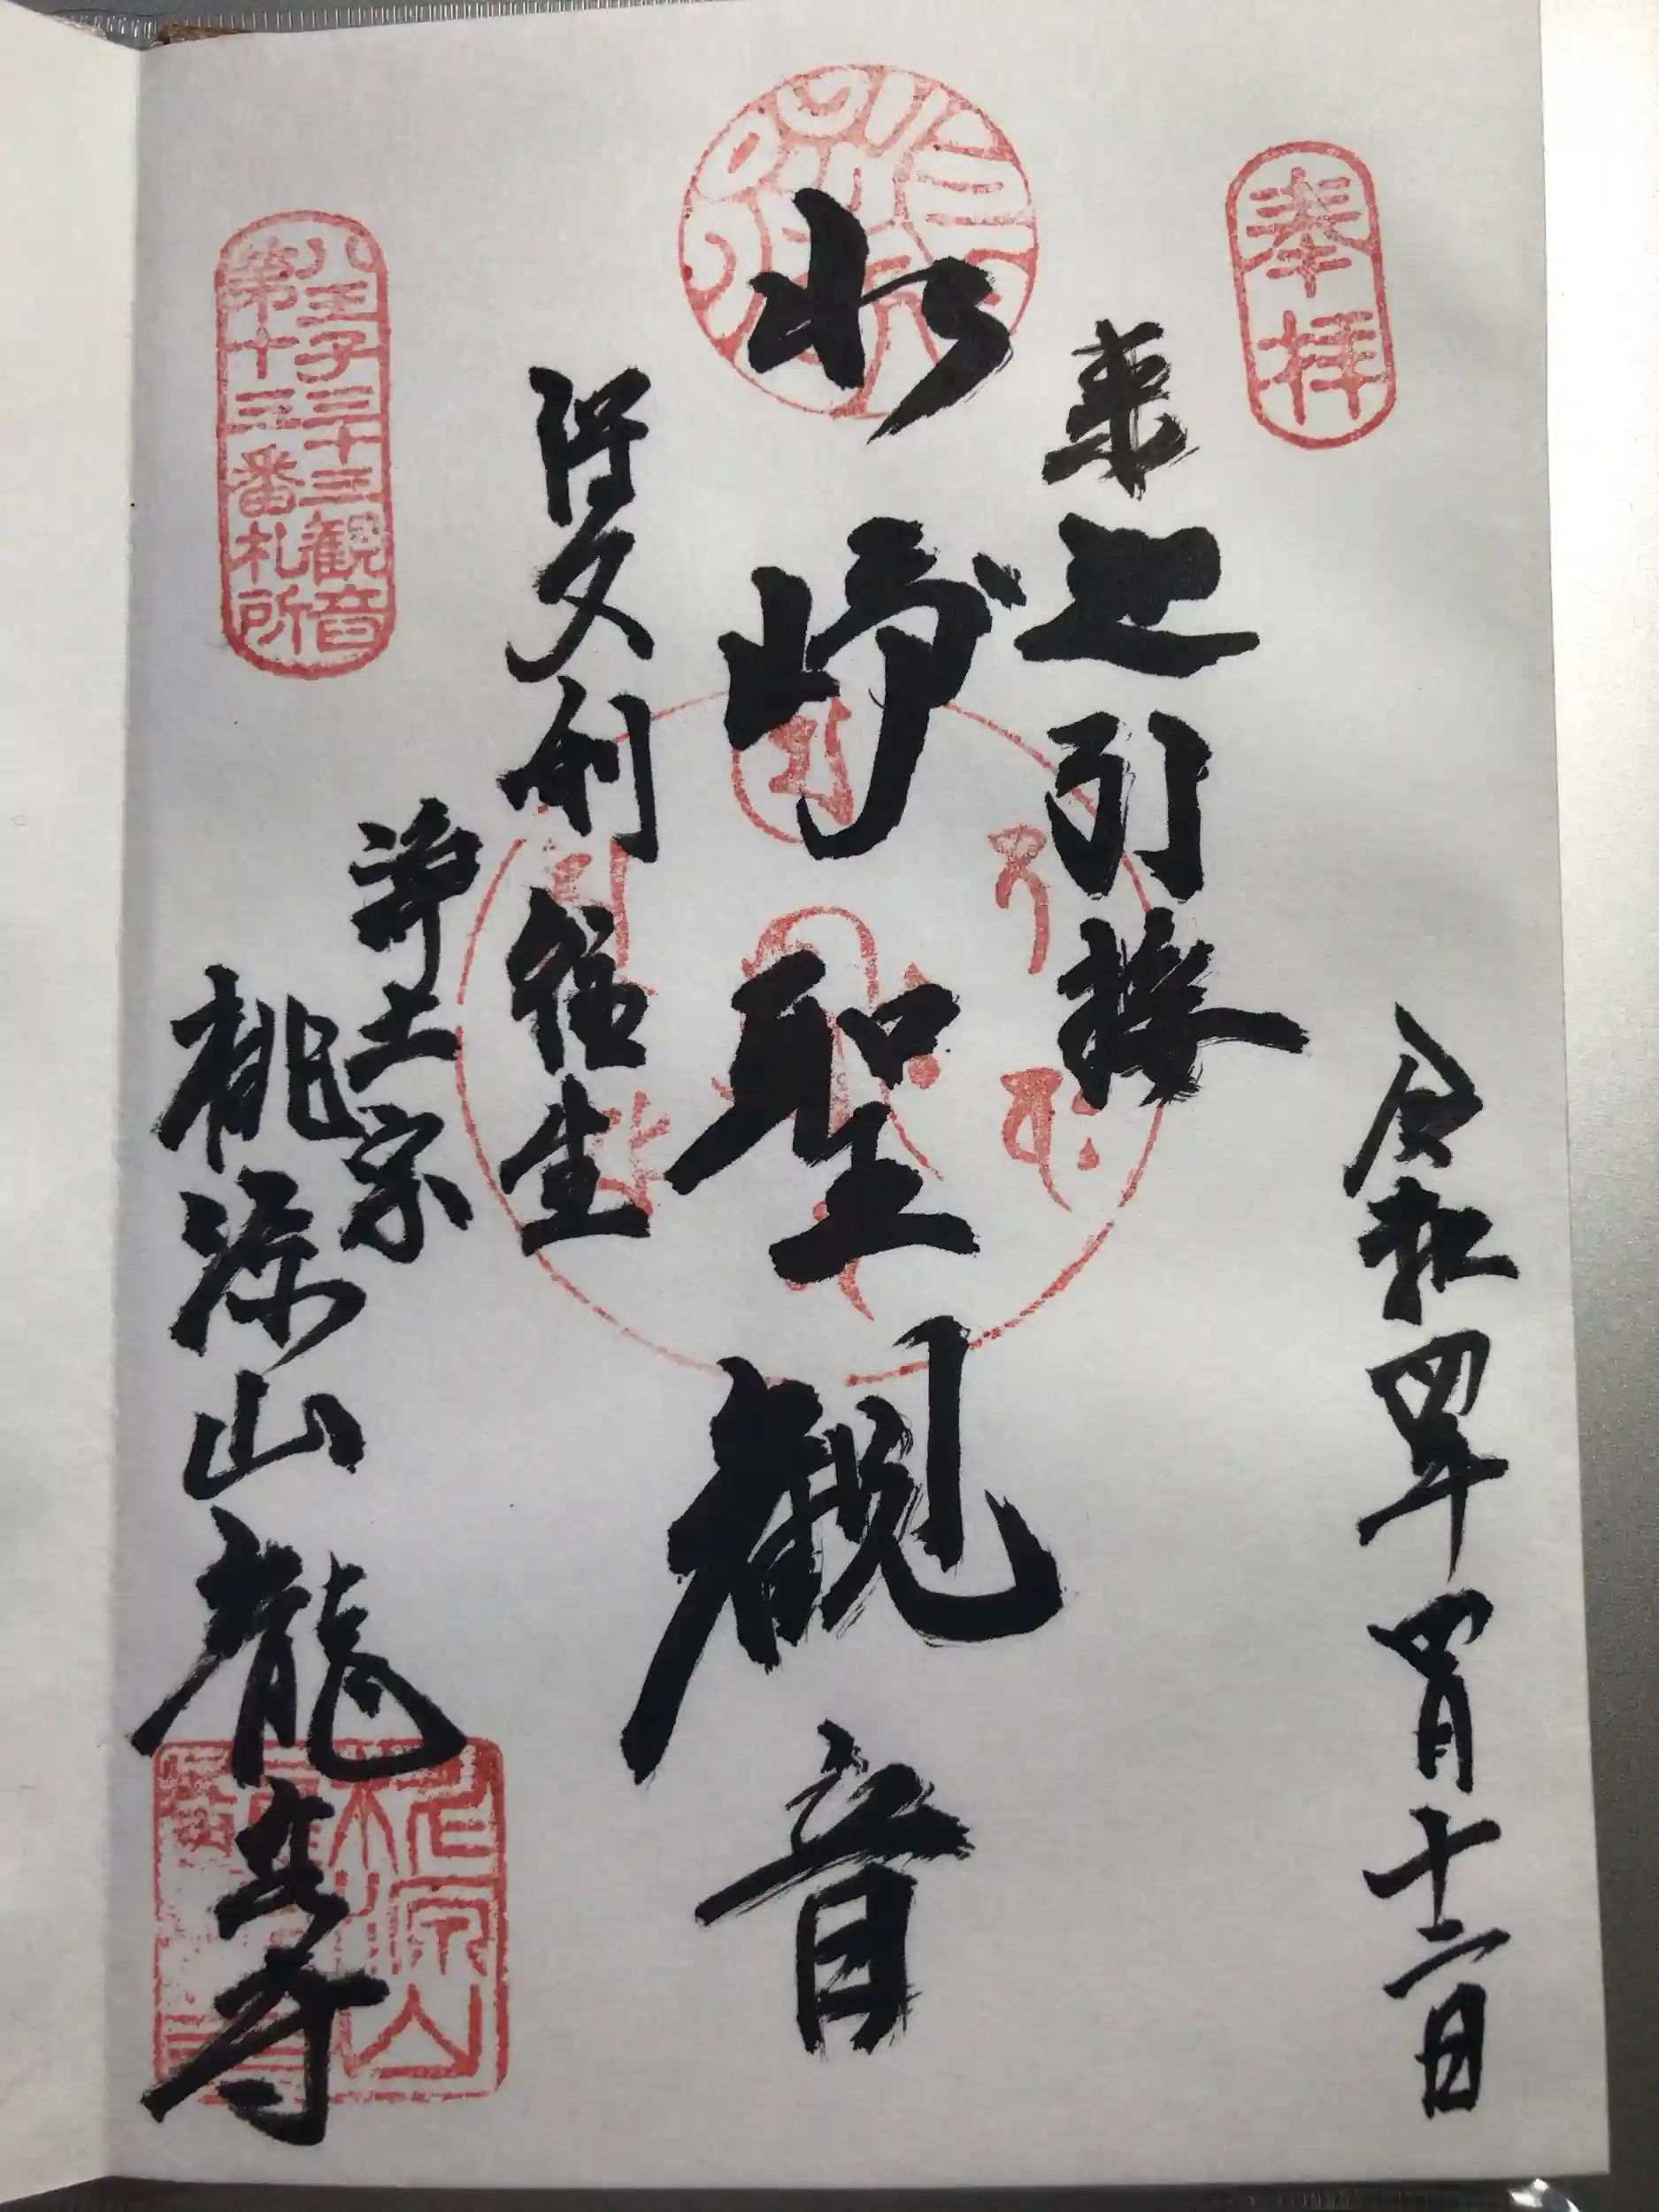 奉拝
令和四年四月十二日
来迎引接
水崎聖観音
得久利往生
八王子三十三観音
第十三番札所
浄土宗
桃源山龍寺
桃源山